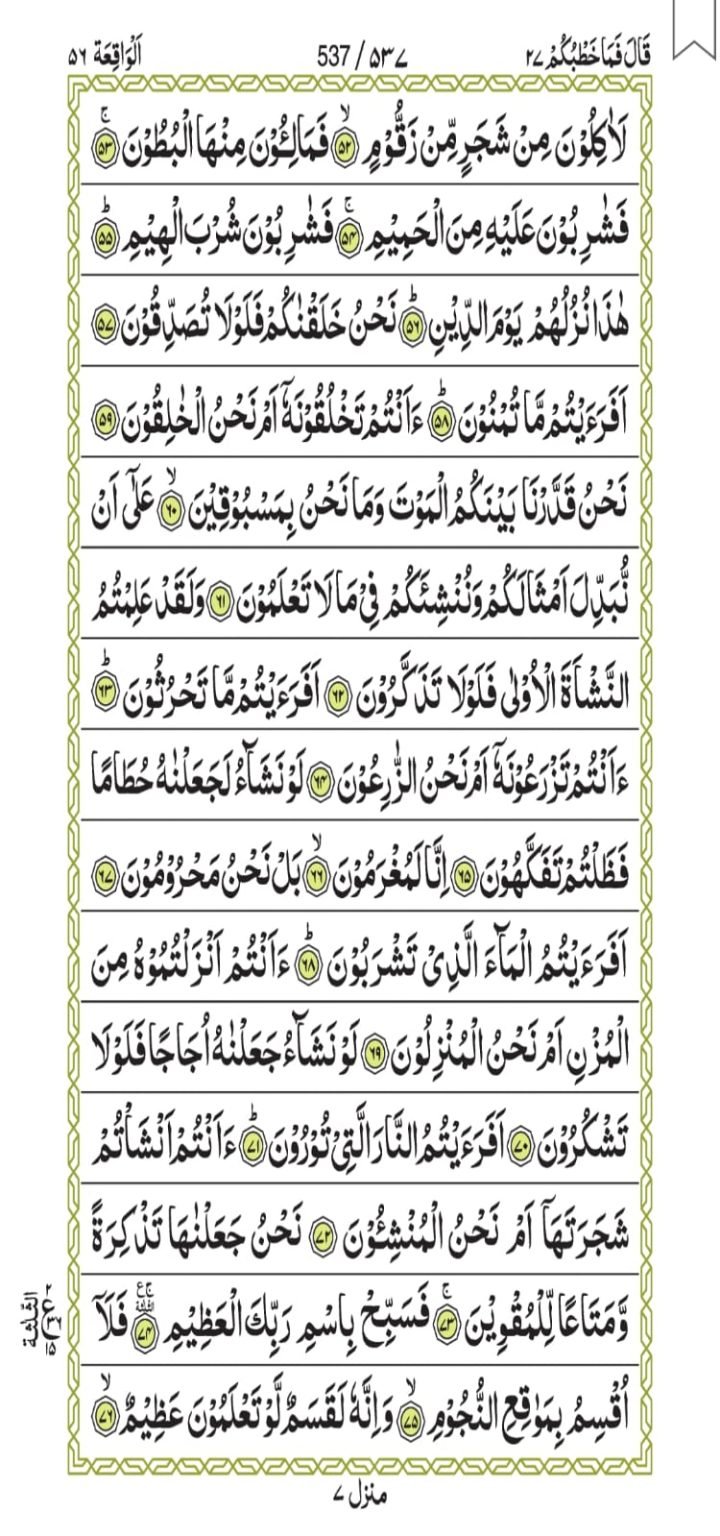 قَالَ فَمَا خَطْبُكُمْ ۲۷ 537 / ۵۳۷ اَلْوَاقِعَة ۵۶
لَاٰكِلُوْنَ مِنْ شَجَرٍ مِّنْ زَقُّوْمٍ ۙ‏﴿۵۲﴾ فَمَالِـُٔوْنَ مِنْهَا الْبُطُوْنَ ۚ‏﴿۵۳﴾
فَشٰرِبُوْنَ عَلَيْهِ مِنَ الْحَمِيْمِ ۚ‏﴿۵۴﴾ فَشٰرِبُوْنَ شُرْبَ الْهِيْمِ ؕ‏﴿۵۵﴾
هٰذَا نُزُلُهُمْ يَوْمَ الدِّيْنِ ؕ‏﴿۵۶﴾ نَحْنُ خَلَقْنٰكُمْ فَلَوْلَا تُصَدِّقُوْنَ ﴿۵۷﴾
اَفَرَءَيْتُمْ مَّا تُمْنُوْنَ ؕ‏﴿۵۸﴾ ءَاَنْتُمْ تَخْلُقُوْنَهٗۤ اَمْ نَحْنُ الْخٰلِقُوْنَ ﴿۵۹﴾
نَحْنُ قَدَّرْنَا بَيْنَكُمُ الْمَوْتَ وَمَا نَحْنُ بِمَسْبُوْقِيْنَ ۙ‏﴿۶۰﴾ عَلٰٓى اَنْ
نُّبَدِّلَ اَمْثَالَكُمْ وَنُنْشِئَكُمْ فِيْ مَا لَا تَعْلَمُوْنَ ﴿۶۱﴾ وَلَقَدْ عَلِمْتُمُ
النَّشْاَةَ الْاُوْلٰى فَلَوْلَا تَذَكَّرُوْنَ ﴿۶۲﴾ اَفَرَءَيْتُمْ مَّا تَحْرُثُوْنَ ؕ‏﴿۶۳﴾
ءَاَنْتُمْ تَزْرَعُوْنَهٗۤ اَمْ نَحْنُ الزّٰرِعُوْنَ ﴿۶۴﴾ لَوْ نَشَآءُ لَجَعَلْنٰهُ حُطَامًا
فَظَلْتُمْ تَفَكَّهُوْنَ ﴿۶۵﴾ اِنَّا لَمُغْرَمُوْنَ ۙ‏﴿۶۶﴾ بَلْ نَحْنُ مَحْرُوْمُوْنَ ﴿۶۷﴾
اَفَرَءَيْتُمُ الْمَآءَ الَّذِيْ تَشْرَبُوْنَ ؕ‏﴿۶۸﴾ ءَاَنْتُمْ اَنْزَلْتُمُوْهُ مِنَ
الْمُزْنِ اَمْ نَحْنُ الْمُنْزِلُوْنَ ﴿۶۹﴾ لَوْ نَشَآءُ جَعَلْنٰهُ اُجَاجًا فَلَوْلَا
تَشْكُرُوْنَ ﴿۷۰﴾ اَفَرَءَيْتُمُ النَّارَ الَّتِيْ تُوْرُوْنَ ؕ‏﴿۷۱﴾ ءَاَنْتُمْ اَنْشَاْتُمْ
شَجَرَتَهَاۤ اَمْ نَحْنُ الْمُنْشِـُٔوْنَ ﴿۷۲﴾ نَحْنُ جَعَلْنٰهَا تَذْكِرَةً
وَّمَتَاعًا لِّلْمُقْوِيْنَ ۚ‏﴿۷۳﴾ فَسَبِّحْ بِاسْمِ رَبِّكَ الْعَظِيْمِ ﴿۷۴﴾ فَلَاۤ
اُقْسِمُ بِمَوٰقِعِ النُّجُوْمِ ۙ‏﴿۷۵﴾ وَاِنَّهٗ لَقَسَمٌ لَّوْ تَعْلَمُوْنَ عَظِيْمٌ ۙ‏﴿۷۶﴾
منزل ۷